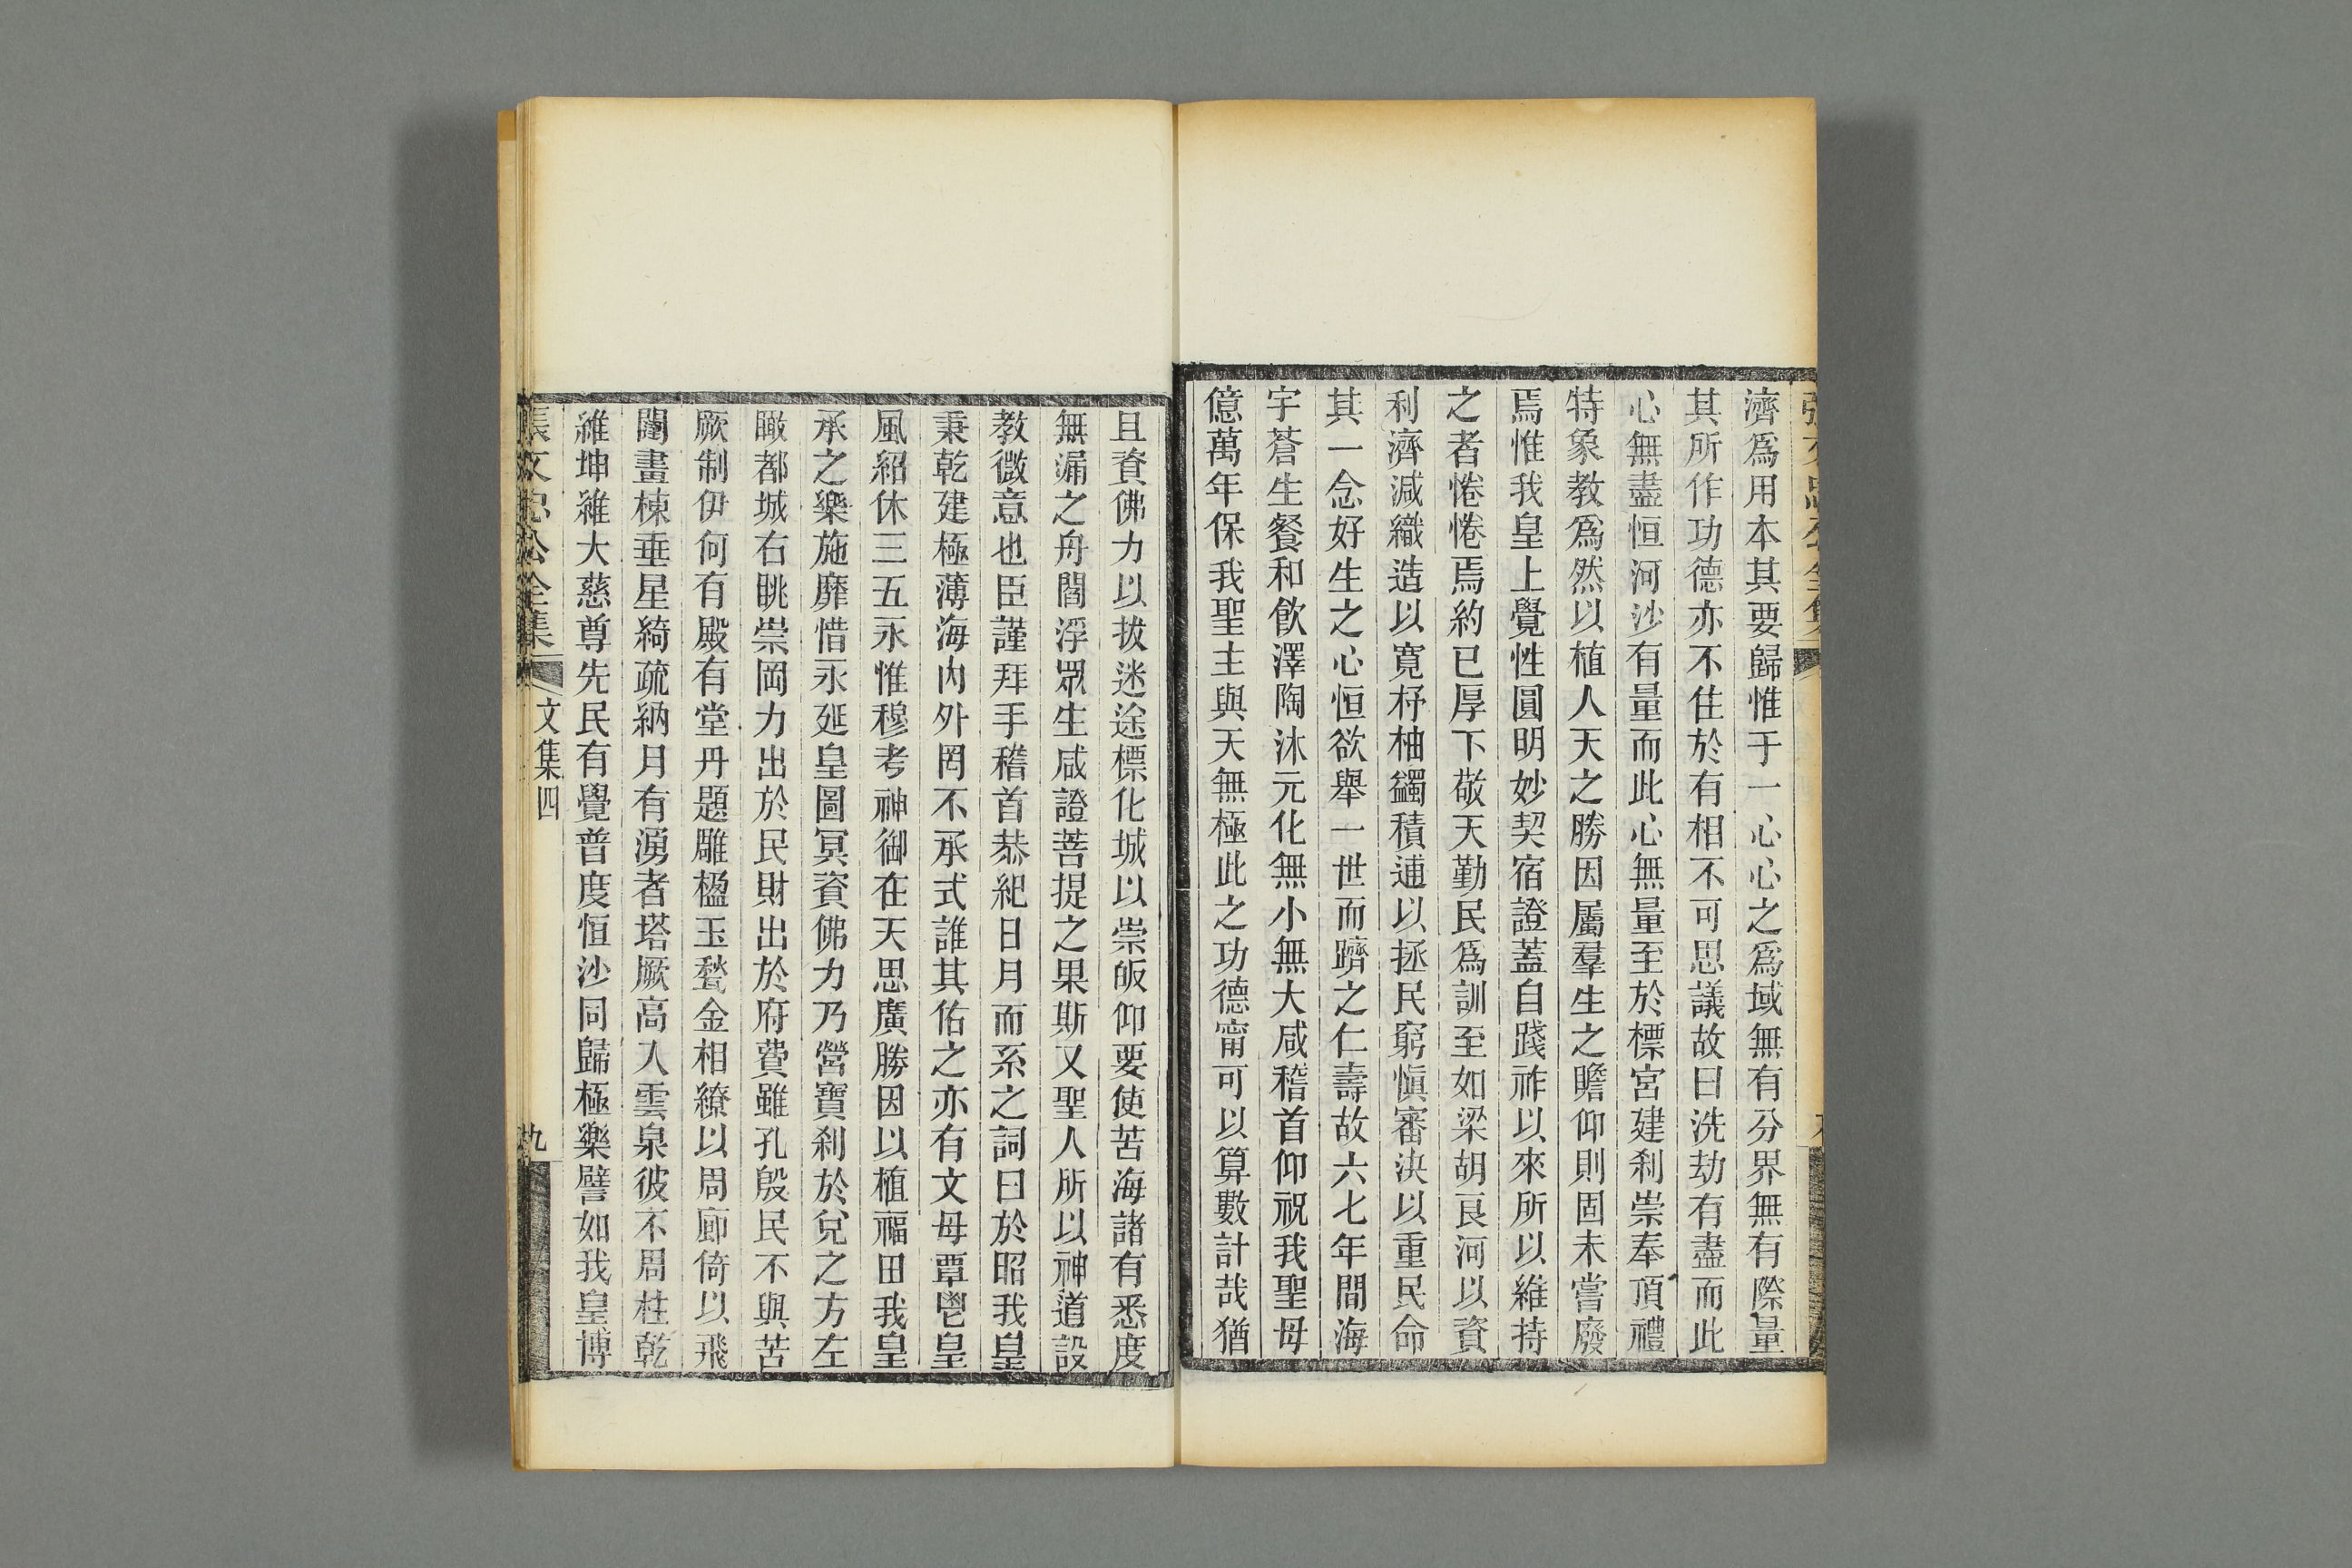 濟爲用本其要歸惟于一心心之爲域無有分界無有際量
其所作功德亦不住於有相不可思議故曰洗劫有盡而此
心無盡恒河沙有量而此心無量至於標宮建刹崇奉頂禮
特象教爲然以植人天之勝因屬羣生之瞻仰則固未嘗廢
焉惟我皇上覺性圓明妙契宿證蓋自踐祚以來所以維持
之者惓惓焉約已厚下敬天勤民爲訓至如梁胡良河以資
利濟減織造以寬杼柚蠲積逋以拯民窮慎審決以重民命
其一念好生之心恒欲舉一世而躋之仁壽故六七年間海
宇蒼生餐和飲澤陶沐元化無小無大咸稽首仰祝我聖母
億萬年保我聖主與天無極此之功德甯可以算數計哉猶
且資佛力以拔迷途標化城以崇皈仰要使苦海諸有悉度
無漏之舟閻浮眾生咸證菩提之果斯又聖人所以神道設
教微意也臣謹拜手稽首恭紀日月而系之詞曰於昭我皇
秉乾建極薄海內外罔不承式誰其佑之亦有文母覃鬯皇
風紹休三五永惟穆考神御在天思廣勝因以植福田我皇
承之樂施靡惜永延皇圖冥資佛力乃營寶刹於兌之方左
瞰都城右眺崇岡力出於民財出於府費雖孔殷民不與苦
厥制伊何有殿有堂丹題雕楹玉甃金相繚以周廊倚以飛
閣畫棟垂星綺疏納月有湧者塔厥高入雲泉彼不周柱乾
維坤維大慈尊先民有覺普度恒沙同歸極樂譬如我皇博
張文忠公全集
文集四
九